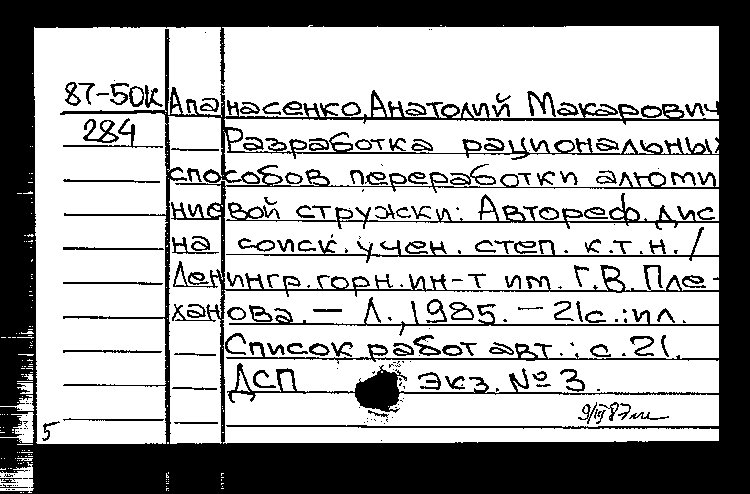 87-50к Апанасенко, Анатолий Макарович
284 Разработка рациональных
способов переработки алюми
ниевой стружки: Автореф. дис
на соиск. учен. степ. к.т.н./
Ленингр. горн. ин-т им. Г.В. Пле-
ханова. — Л., 1985. — 21с.: ил.
Список работ авт.: с. 21.
ДСП экз. № 3.
5